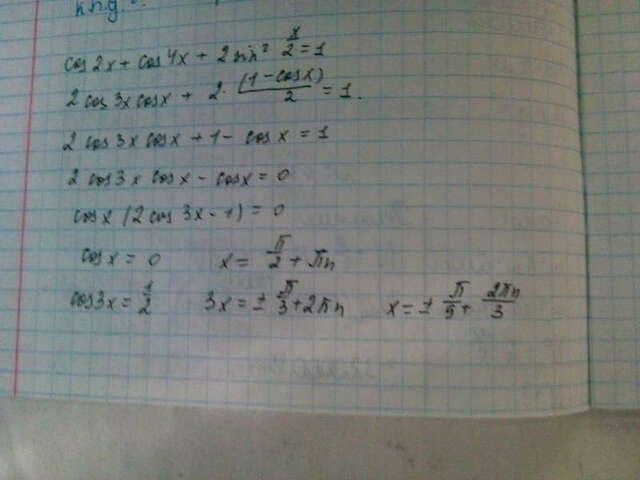 к.п.д
cos2x + cos4x + 2 sin² x/2 = 1
2 cos3x cosx + 2 · (1 - cosx)/2 = 1.
2 cos3x cosx + 1 - cosx = 1
2 cos3x cosx - cosx = 0
cosx (2 cos 3x - 1) = 0
cosx = 0 x = π/2 + πn
cos3x = 1/2 3x = ± π/3 + 2πn x = ± π/9 + 2πn/3